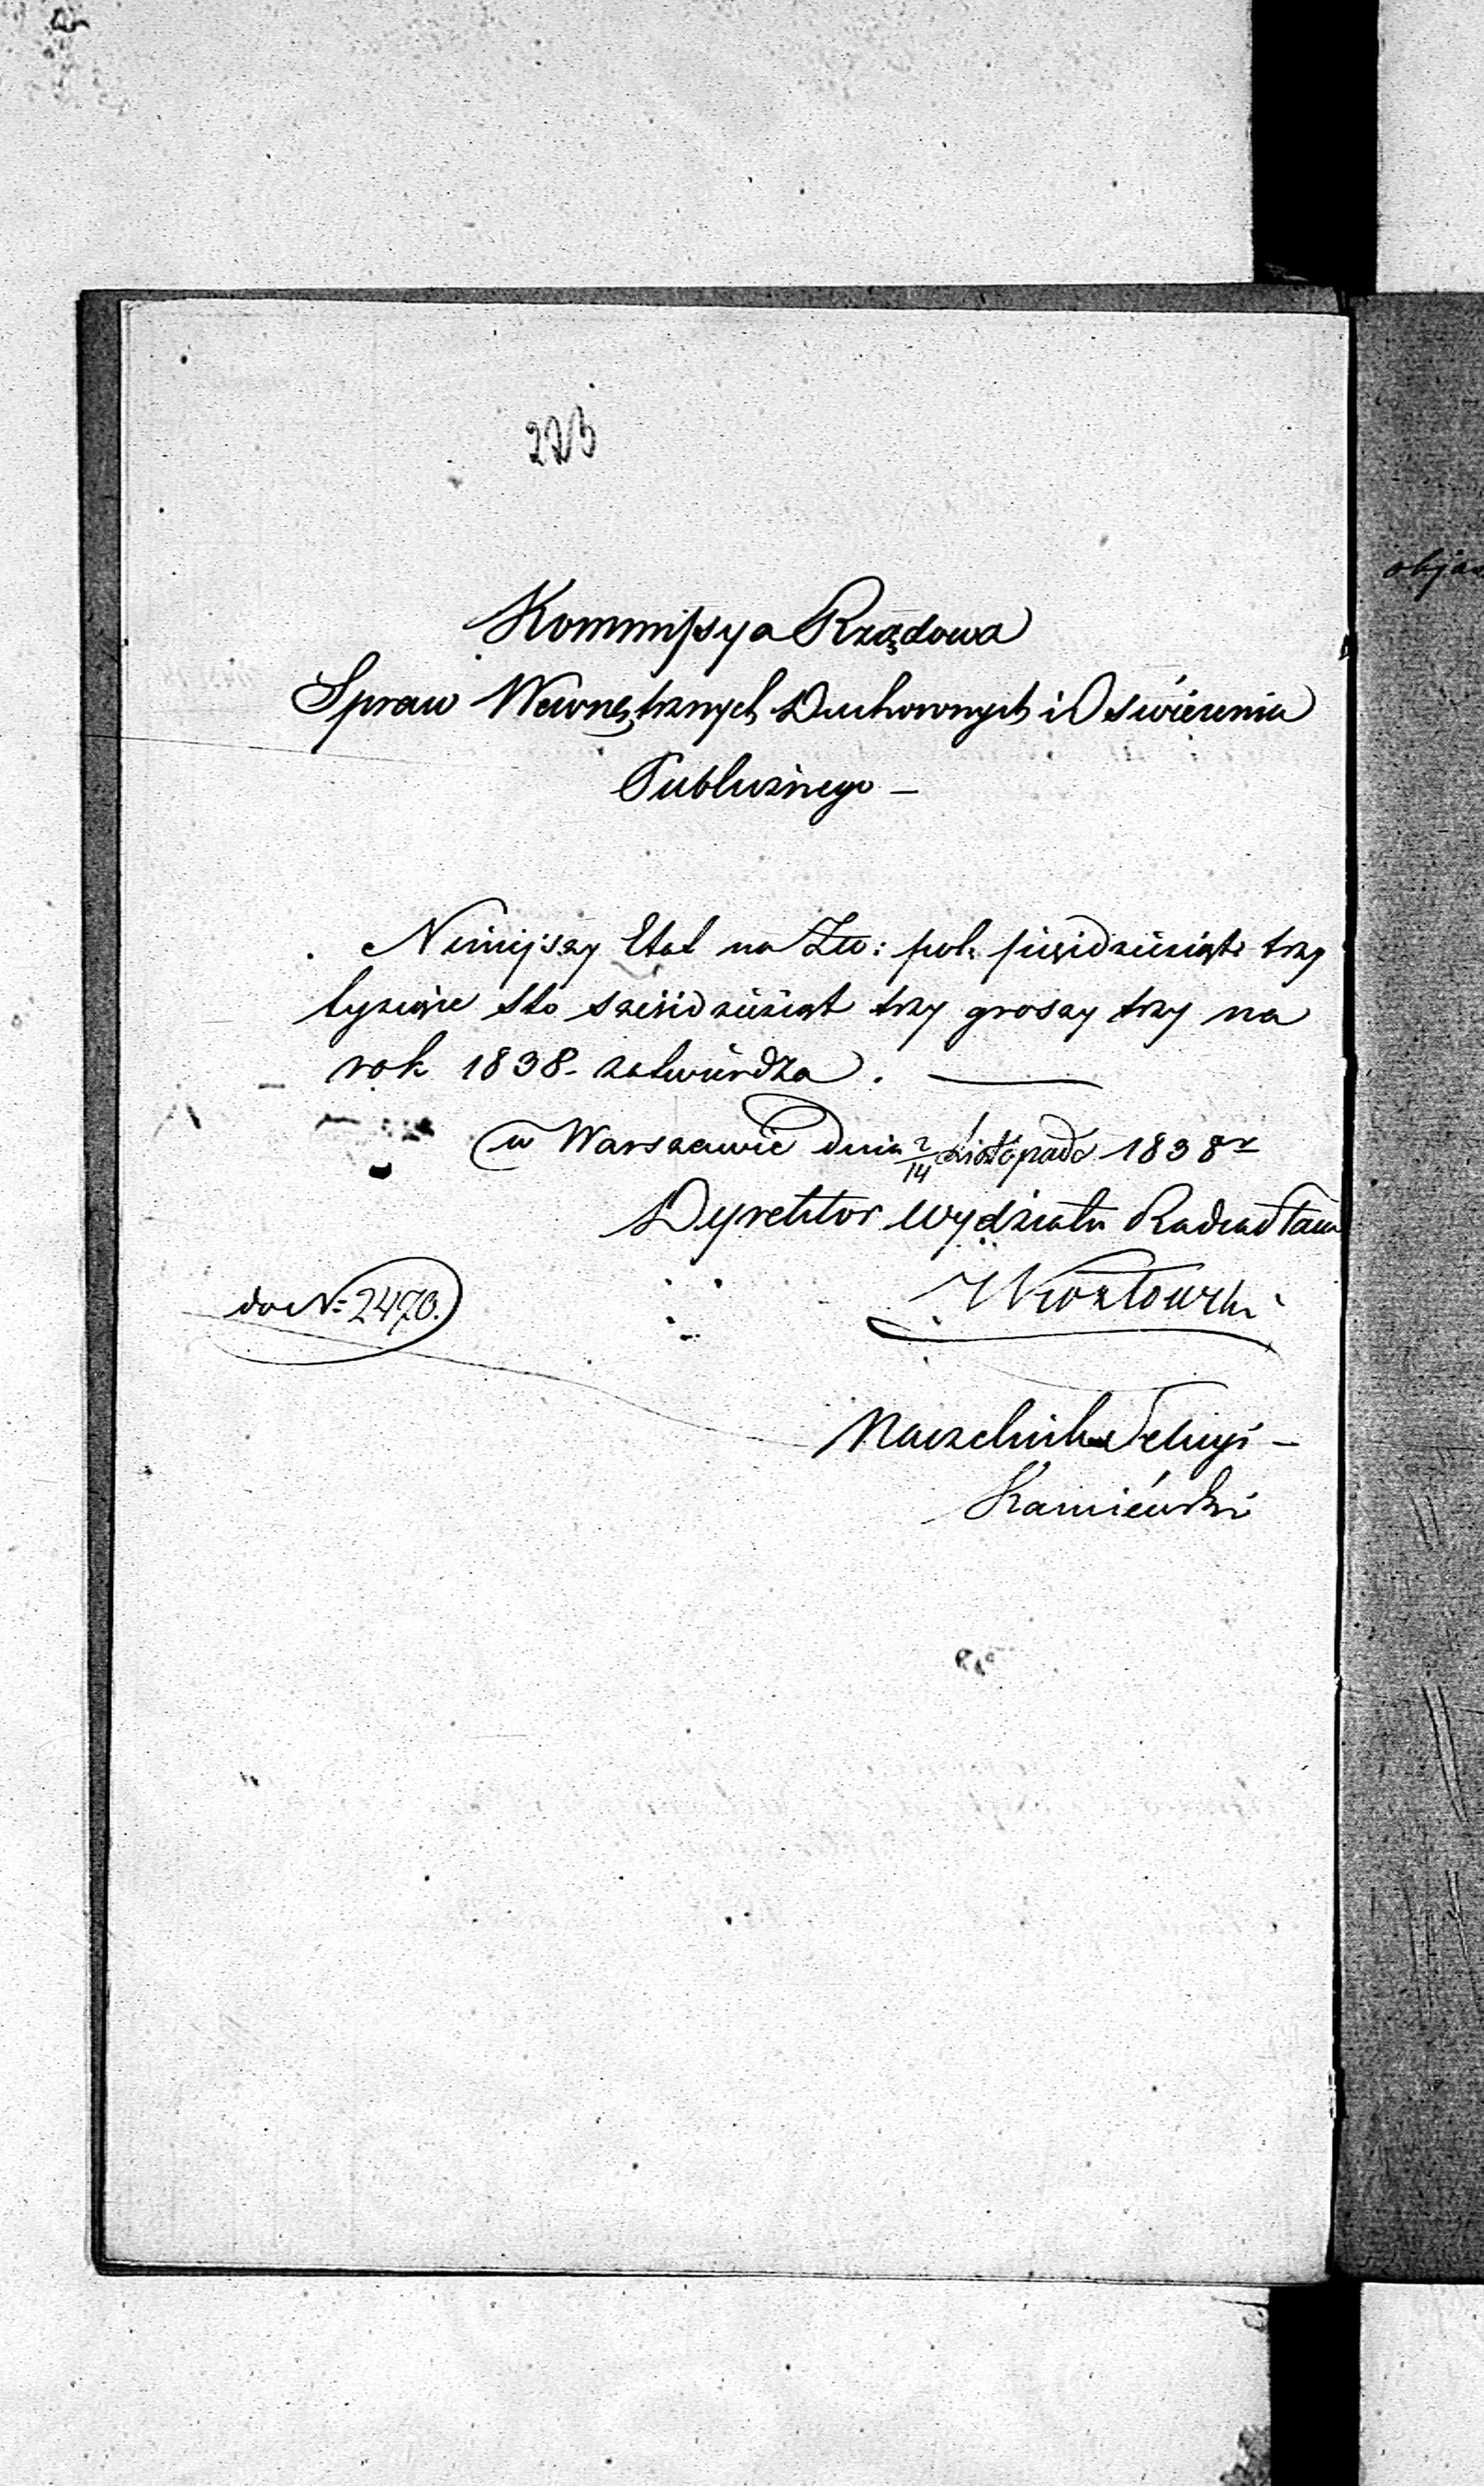 Kommissya Rządowa
Spraw Wewnętrznych Duchownych i Oświecenia
Publicznego –
Niniejszy Etat na Złł: pol: pięćdziesiąt trzy
tysiące sto sześćdziesiąt trzy groszy trzy na
rok 1838. zatwierdza. —
w Warszawie dnia 2/14 Listopada 1838 r
Dyrektor Wydziału Radca Stanu
do N: 2470.
Naczelnik Sekcyi –
objaś